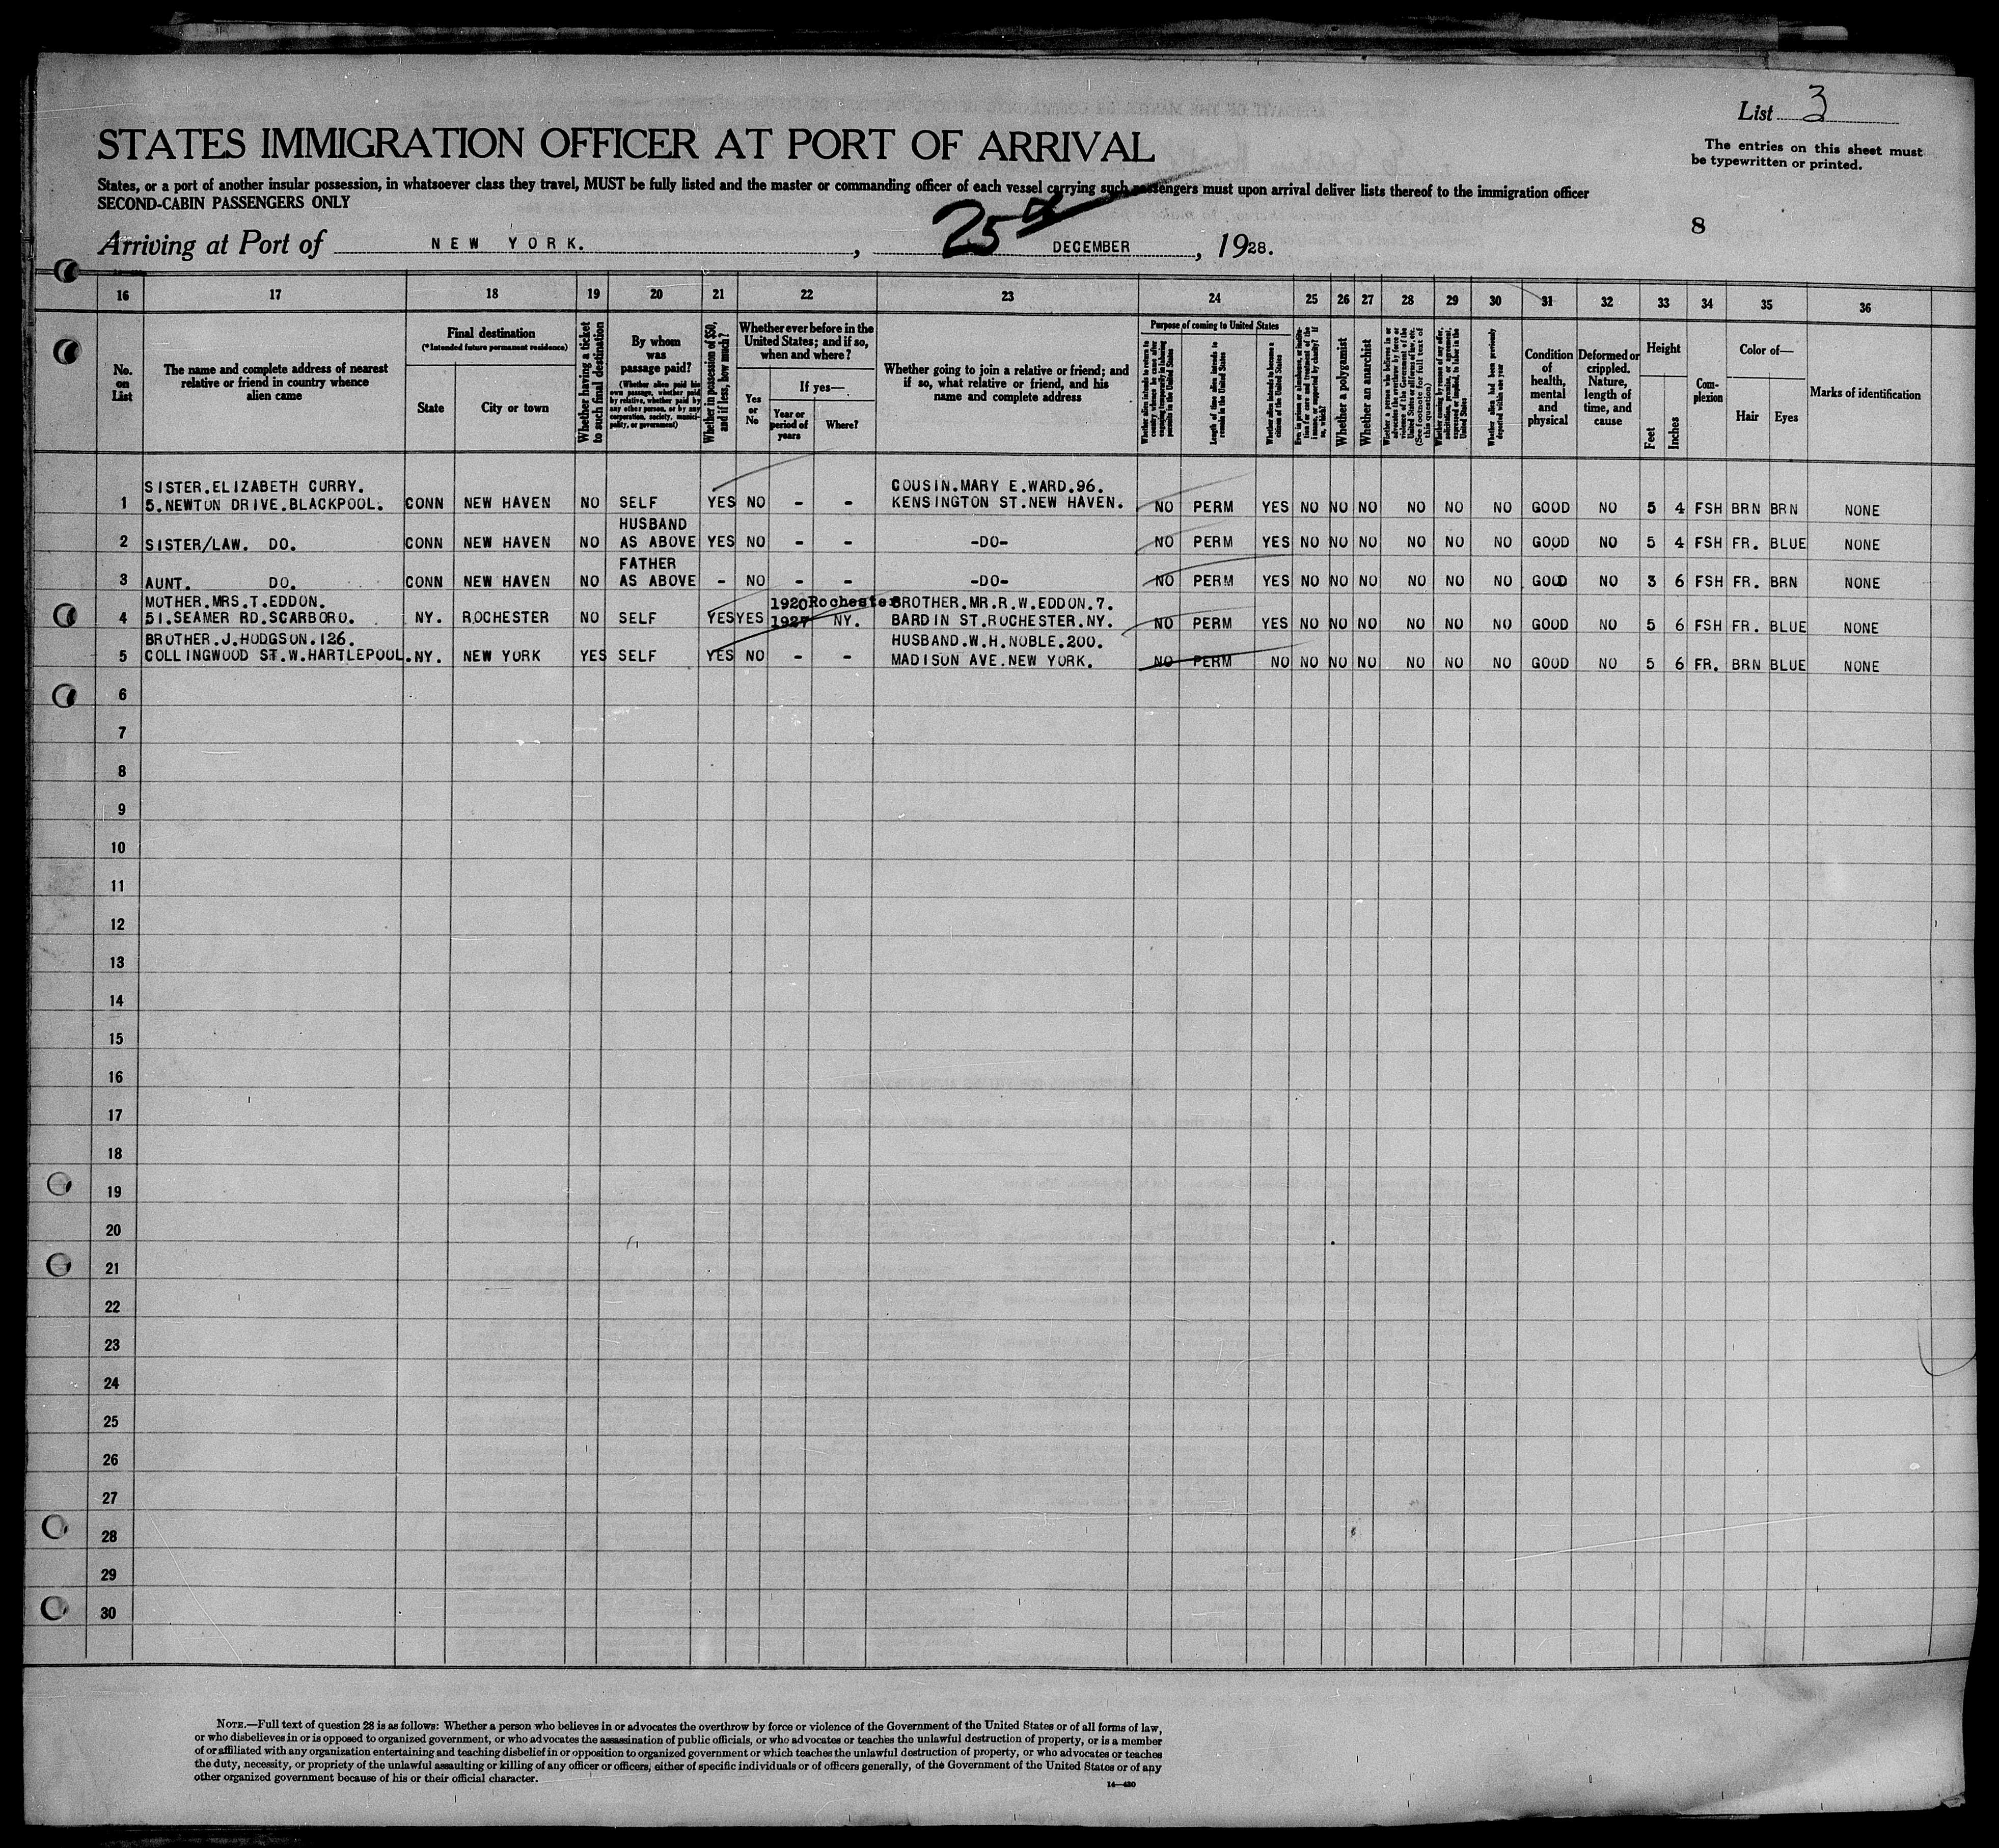 List 3
The entries on this sheet must
be typewritten or printed.
STATES IMMIGRATION OFFICER AT PORT OF ARRIVAL
States, or a port of another insular possession, in whatsoever class they travel, MUST be fully listed and the master or commanding officer of each vessel carrying such passengers must upon arrival deliver lists thereof to the immigration officer
SECOND-CABIN PASSENGERS ONLY
8
Arriving at Port of NEW YORK. , 25th DECEMBER , 1928.
16 17 18 19 20 21 22 23 24 25 26 27 28 29 30 31 32 33 34 35 36
No. on List
The name and complete address of nearest relative or friend in country whence alien came
Final destination
(*Intended future permanent residence)
State
City or town
Whether having a ticket to such final destination
By whom was passage paid?
(Whether alien paid his own passage, whether paid by relative, whether paid by any other person, or by any corporation, society, municipality, or government)
Whether in possession of $50, and if less, how much?
Whether ever before in the United States; and if so, when and where?
Yes or No
If yes—
Year or period of years
Where?
Whether going to join a relative or friend; and if so, what relative or friend, and his name and complete address
Purpose of coming to United States
Length of time alien intends to remain in the United States
Whether alien intends to become a citizen of the United States
Whether a polygamist
Whether an anarchist
Whether alien had been previously deported within one year
Condition of health, mental and physical
Deformed or crippled. Nature, length of time, and cause
Height
Feet
Inches
Complexion
Color of—
Hair
Eyes
Marks of identification
SISTER.ELIZABETH CURRY. COUSIN.MARY E.WARD.96.
1 5.NEWTON DRIVE.BLACKPOOL. CONN NEW HAVEN NO SELF YES NO - - KENSINGTON ST.NEW HAVEN. NO PERM YES NO NO NO NO NO NO GOOD NO 5 4 FSH BRN BRN NONE
HUSBAND
2 SISTER/LAW. DO. CONN NEW HAVEN NO AS ABOVE YES NO - - -DO- NO PERM YES NO NO NO NO NO NO GOOD NO 5 4 FSH FR. BLUE NONE
FATHER
3 AUNT. DO. CONN NEW HAVEN NO AS ABOVE - NO - - -DO- NO PERM YES NO NO NO NO NO NO GOOD NO 3 6 FSH FR. BRN NONE
MOTHER.MRS.T.EDDON. 1920 Rochester BROTHER.MR.R.W.EDDON.7.
4 51.SEAMER RD.SCARBORO. NY. ROCHESTER NO SELF YES YES 1927 NY. BARDIN ST.ROCHESTER.NY. NO PERM YES NO NO NO NO NO NO GOOD NO 5 6 FSH FR. BLUE NONE
BROTHER.J.HODGSON.126. HUSBAND.W.H.NOBLE.200.
5 COLLINGWOOD ST.W.HARTLEPOOL. NY. NEW YORK YES SELF YES NO - - MADISON AVE.NEW YORK. NO PERM NO NO NO NO NO NO NO GOOD NO 5 6 FR. BRN BLUE NONE
6
7
8
9
10
11
12
13
14
15
16
17
18
19
20
21
22
23
24
25
26
27
28
29
30
NOTE.—Full text of question 28 is as follows: Whether a person who believes in or advocates the overthrow by force or violence of the Government of the United States or of all forms of law,
or who disbelieves in or is opposed to organized government, or who advocates the assassination of public officials, or who advocates or teaches the unlawful destruction of property, or is a member
of or affiliated with any organization entertaining and teaching disbelief in or opposition to organized government or which teaches the unlawful destruction of property, or who advocates or teaches
the duty, necessity, or propriety of the unlawful assaulting or killing of any officer or officers, either of specific individuals or of officers generally, of the Government of the United States or of any
other organized government because of his or their official character.
14—480